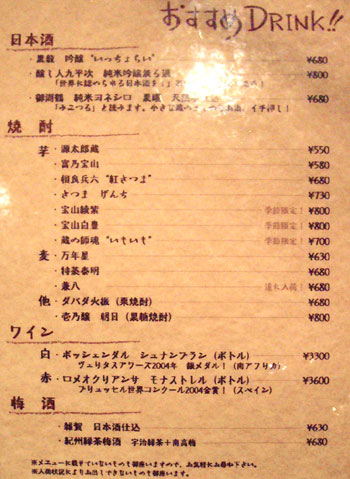 おすすめ DRINK!!
日本酒
・黒龍 吟醸 "いっちょらい" ¥680
・醸し人九平次 純米吟醸 ¥800
「世界に認められる日本酒を」
・御湖鶴 純米ヨネシロ ¥680
「みこつる」と読みます。小さな蔵 イチ押し!
焼酎
芋・源太郎蔵 ¥550
・富乃宝山 ¥580
・相良兵六 "紅さつま" ¥680
・さつま げんち ¥730
・宝山綾紫 季節限定! ¥800
・宝山白豊 季節限定! ¥800
・蔵の師魂 "いもいも" 季節限定! ¥700
麦・万年星 ¥630
・特蒸泰明 ¥680
・兼八 遂に入荷! ¥680
他・ダバダ火振(栗焼酎) ¥680
・壱乃醸 朝日(黒糖焼酎) ¥800
ワイン
白・ボッシェンダル シュナンブラン(ボトル) ¥3300
ヴェリタスアワーズ2004年 銀メダル!(南アフリカ)
赤・ロメオクリアンサ モナストレル(ボトル) ¥3600
ブリュッセル世界コンクール2004金賞!(スペイン)
梅酒
・雑賀 日本酒仕込 ¥630
・紀州緑茶梅酒 宇治緑茶+南高梅 ¥680
※メニューに載せていないものも御座いますので、お気軽にお尋ね下さい。
※入荷状況によりお出しできないものも御座います。